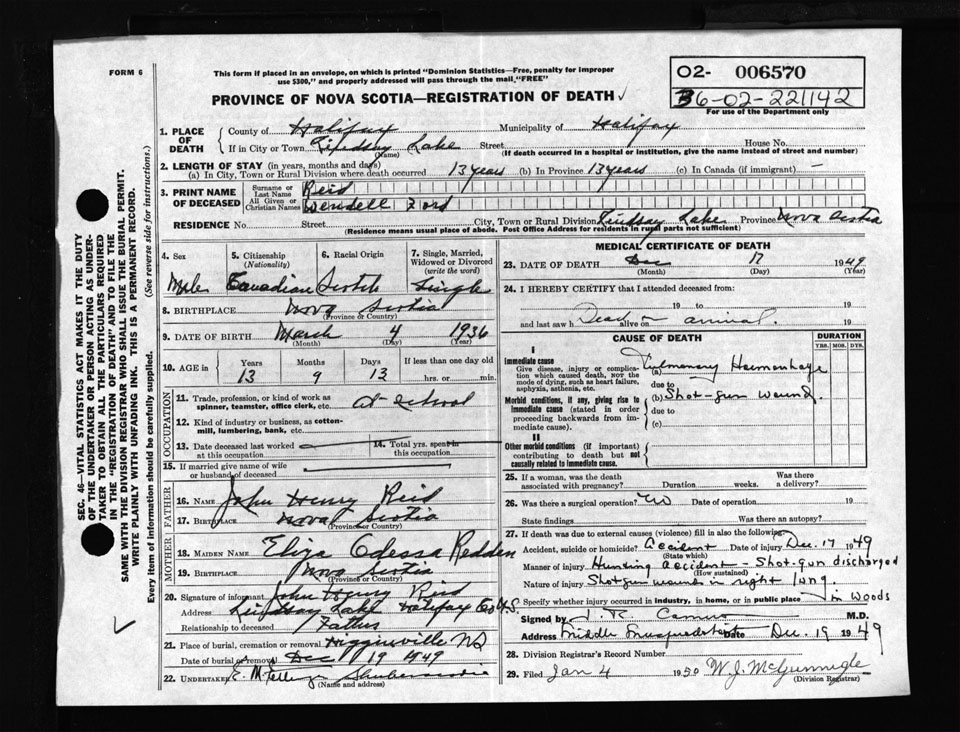 FORM 6
This form if placed in an envelope, on which is printed "Dominion Statistics—Free, penalty for improper
use $300," and properly addressed will pass through the mail, "FREE"
PROVINCE OF NOVA SCOTIA—REGISTRATION OF DEATH ✓
02- 006570
36-02-221142
For use of the Department only
SEC. 46—VITAL STATISTICS ACT MAKES IT THE DUTY
OF THE UNDERTAKER OR PERSON ACTING AS UNDER-
TAKER TO OBTAIN ALL THE PARTICULARS REQUIRED
IN THE "REGISTRATION OF DEATH" AND TO FILE THE
SAME WITH THE DIVISION REGISTRAR WHO SHALL ISSUE THE BURIAL PERMIT.
WRITE PLAINLY WITH UNFADING INK. THIS IS A PERMANENT RECORD.
Every item of information should be carefully supplied. (See reverse side for instructions.)
1. PLACE OF DEATH
County of Halifax Municipality of Halifax
If in City or Town Lindsay Lake Street House No.
(Name) (If death occurred in a hospital or institution, give the name instead of street and number)
2. LENGTH OF STAY (in years, months and days)
(a) In City, Town or Rural Division where death occurred 13 years (b) In Province 13 years (c) In Canada (if immigrant) —
3. PRINT NAME OF DECEASED
Surname or Last Name Reid
All Given or Christian Names Wendell Ford
RESIDENCE No. Street City, Town or Rural Division Lindsay Lake Province Nova Scotia
(Residence means usual place of abode. Post Office Address for residents in rural parts not sufficient)
4. Sex 5. Citizenship (Nationality) 6. Racial Origin 7. Single, Married, Widowed or Divorced (write the word)
Male Canadian Scotch Single
8. BIRTHPLACE Nova Scotia
(Province or Country)
9. DATE OF BIRTH March 4 1936
(Month) (Day) (Year)
10. AGE in Years Months Days If less than one day old
13 9 13 hrs. or min.
OCCUPATION
11. Trade, profession, or kind of work as
spinner, teamster, office clerk, etc. At school
12. Kind of industry or business, as cotton-
mill, lumbering, bank, etc.
13. Date deceased last worked at this occupation 14. Total yrs. spent in this occupation
15. If married give name of wife
or husband of deceased
FATHER
16. NAME John Henry Reid
17. BIRTHPLACE Nova Scotia
(Province or Country)
MOTHER
18. MAIDEN NAME Eliza Odessa Redden
19. BIRTHPLACE Nova Scotia
(Province or Country)
20. Signature of informant John Henry Reid
Address Lindsay Lake Halifax Co N.S.
Relationship to deceased Father
21. Place of burial, cremation or removal Higginsville NS
Date of burial or removal Dec 19 1949
22. UNDERTAKER Shubenacadie
(Name and address)
MEDICAL CERTIFICATE OF DEATH
23. DATE OF DEATH Dec 17 1949
(Month) (Day) (Year)
24. I HEREBY CERTIFY that I attended deceased from:
19 to 19
and last saw h Dead on alive on arrival. 19
CAUSE OF DEATH
DURATION
YRS. MOS. DYS.
I
Immediate cause
Give disease, injury or complica-
tion which caused death, NOT the
mode of dying, such as heart failure,
asphyxia, asthenia, etc.
(a) Pulmonary Haemorrhage
due to
Morbid conditions, if any, giving rise to
immediate cause (stated in order
proceeding backwards from im-
mediate cause).
(b) Shot-gun wound.
due to
(c)
II
Other morbid conditions (if important)
contributing to death but not
causally related to immediate cause.
25. If a woman, was the death
associated with pregnancy? Duration weeks. Was there a delivery?
26. Was there a surgical operation? No Date of operation 19
State findings Was there an autopsy?
27. If death was due to external causes (violence) fill in also the following:
Accident, suicide or homicide? Accident Date of injury Dec. 17 1949
(State which)
Manner of injury Hunting accident - Shot-gun discharged
(How sustained)
Nature of injury Shotgun wound in right lung.
Specify whether injury occurred in industry, in home, or in public place In woods
Signed by M.D.
Address Middle Musquodoboit Date Dec. 19 1949
28. Division Registrar's Record Number
29. Filed Jan 4 1950 W. J. McGunnigle
(Division Registrar)
✓